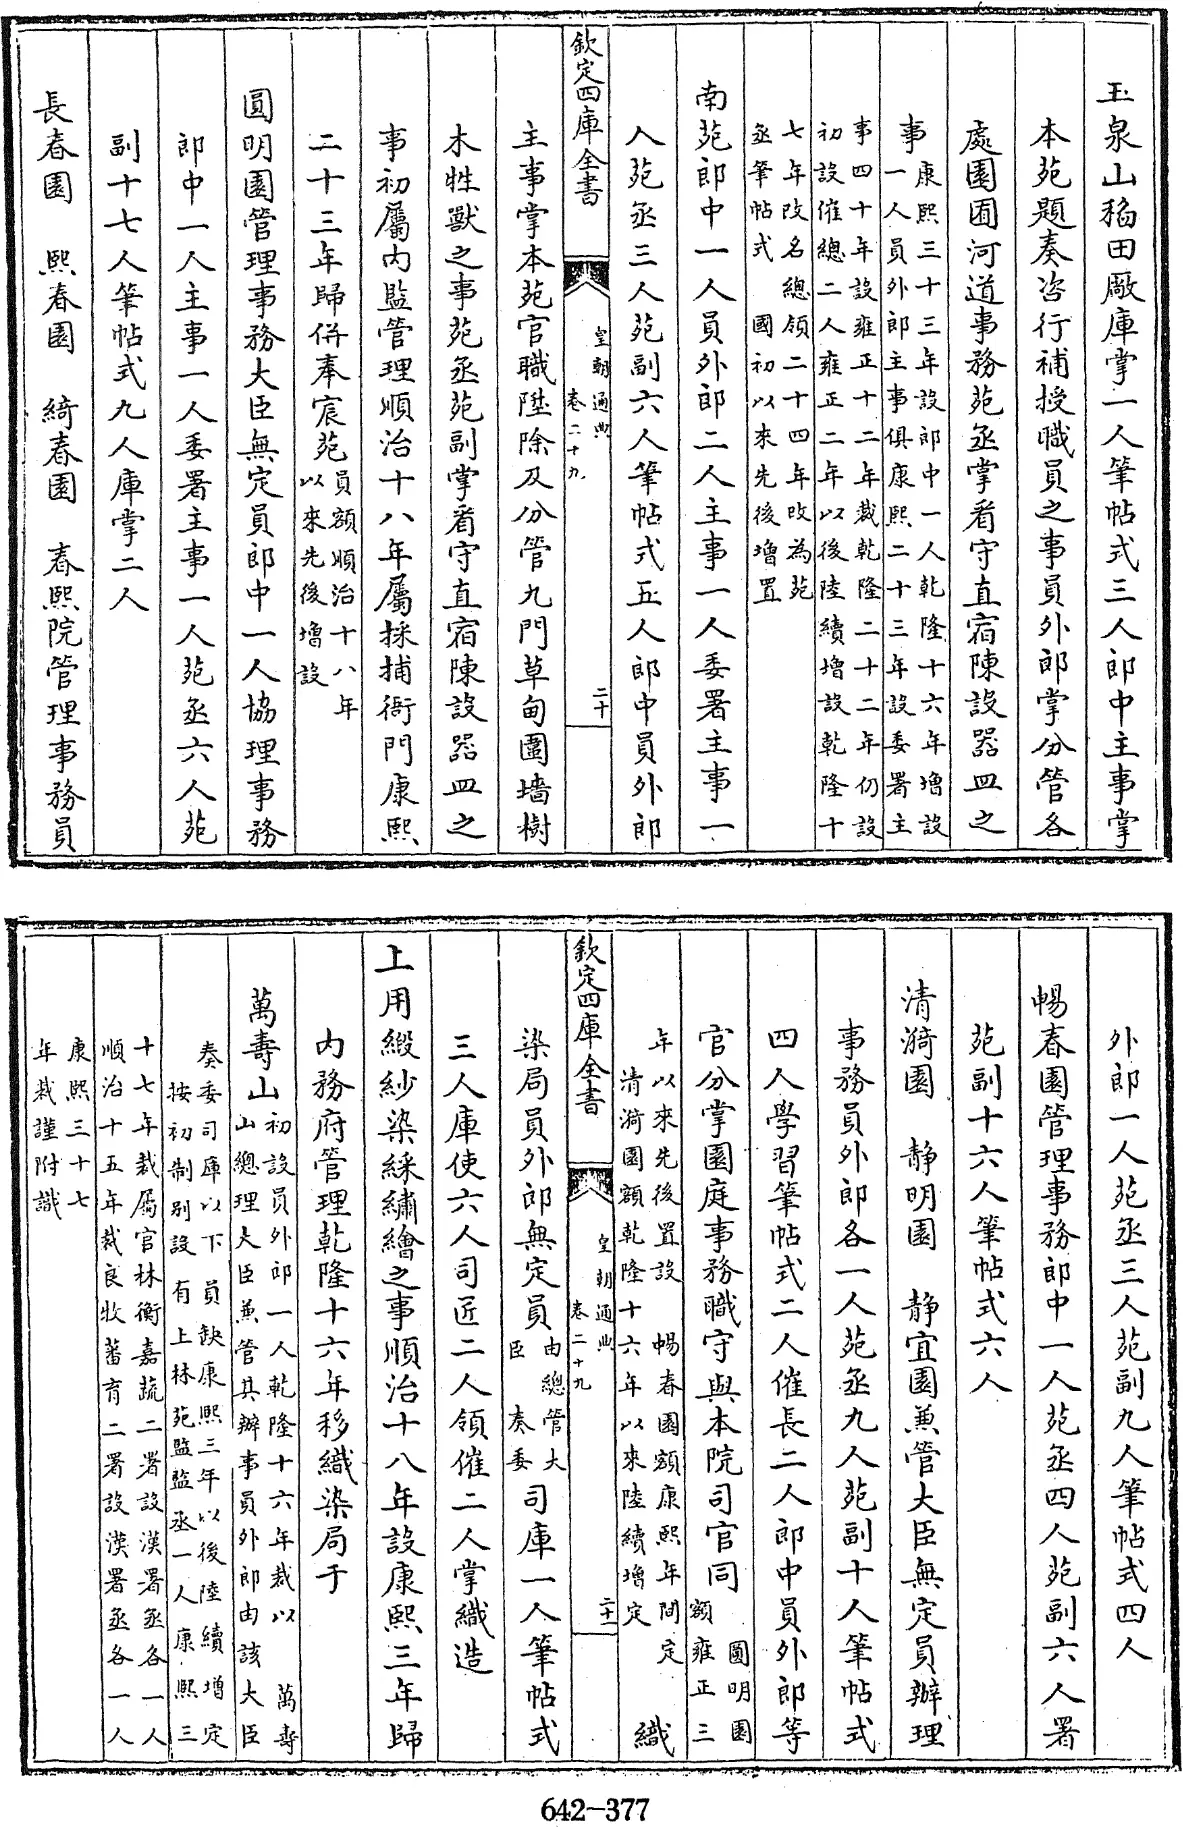 玉泉山稻田廠庫掌一人筆帖式三人郎中主事掌
本苑題奏咨行補授職員之事員外郎掌分管各
處園囿河道事務苑丞掌看守直宿陳設器皿之
事
康熙三十三年設郎中一人乾隆十六年增設
一人員外郎主事俱康熙二十三年設委署主
事四十年設雍正十二年裁乾隆二十二年仍設
初設催總二人雍正二年以後陸續增設乾隆十
七年改名總領二十四年改為苑
丞筆帖式國初以來先後增置
南苑郎中一人員外郎二人主事一人委署主事一
人苑丞三人苑副六人筆帖式五人郎中員外郎
欽定四庫全書
皇朝通典
卷二十九
二十
主事掌本苑官職陞除及分管九門草甸圍墻樹
木牲獸之事苑丞苑副掌看守直宿陳設器皿之
事初屬内監管理順治十八年屬採捕衙門康熙
二十三年歸併奉宸苑
員額順治十八年
以來先後增設
圓明園管理事務大臣無定員郎中一人協理事務
郎中一人主事一人委署主事一人苑丞六人苑
副十七人筆帖式九人庫掌二人
長春園 熙春園 綺春園 春熙院管理事務員
外郎一人苑丞三人苑副九人筆帖式四人
暢春園管理事務郎中一人苑丞四人苑副六人署
苑副十六人筆帖式六人
清漪園 靜明園 靜宜園兼管大臣無定員辦理
事務員外郎各一人苑丞九人苑副十人筆帖式
四人學習筆帖式二人催長二人郎中員外郎等
官分掌園庭事務職守與本院司官同
圓明園
額雍正三
年以來先後置設 暢春園額康熙年間定
清漪園額乾隆十六年以來陸續增定
織
欽定四庫全書
皇朝通典
卷二十九
二十一
染局員外郎無定員
由總管大
臣 奏委
司庫一人筆帖式
三人庫使六人司匠二人領催二人掌織造
上用緞紗染綵繡繪之事順治十八年設康熙三年歸
内務府管理乾隆十六年移織染局于
萬壽山
初設員外郎一人乾隆十六年裁以 萬壽
山總理大臣兼管其辦事員外郎由該大臣
奏委司庫以下員缺康熙三年以後陸續增定
按初制別設有上林苑監監丞一人康熙三
十七年裁屬官林衡嘉蔬二署設漢署丞各一人
順治十五年裁良牧蕃育二署設漢署丞各一人
康熙三十七
年裁謹附識
642-377